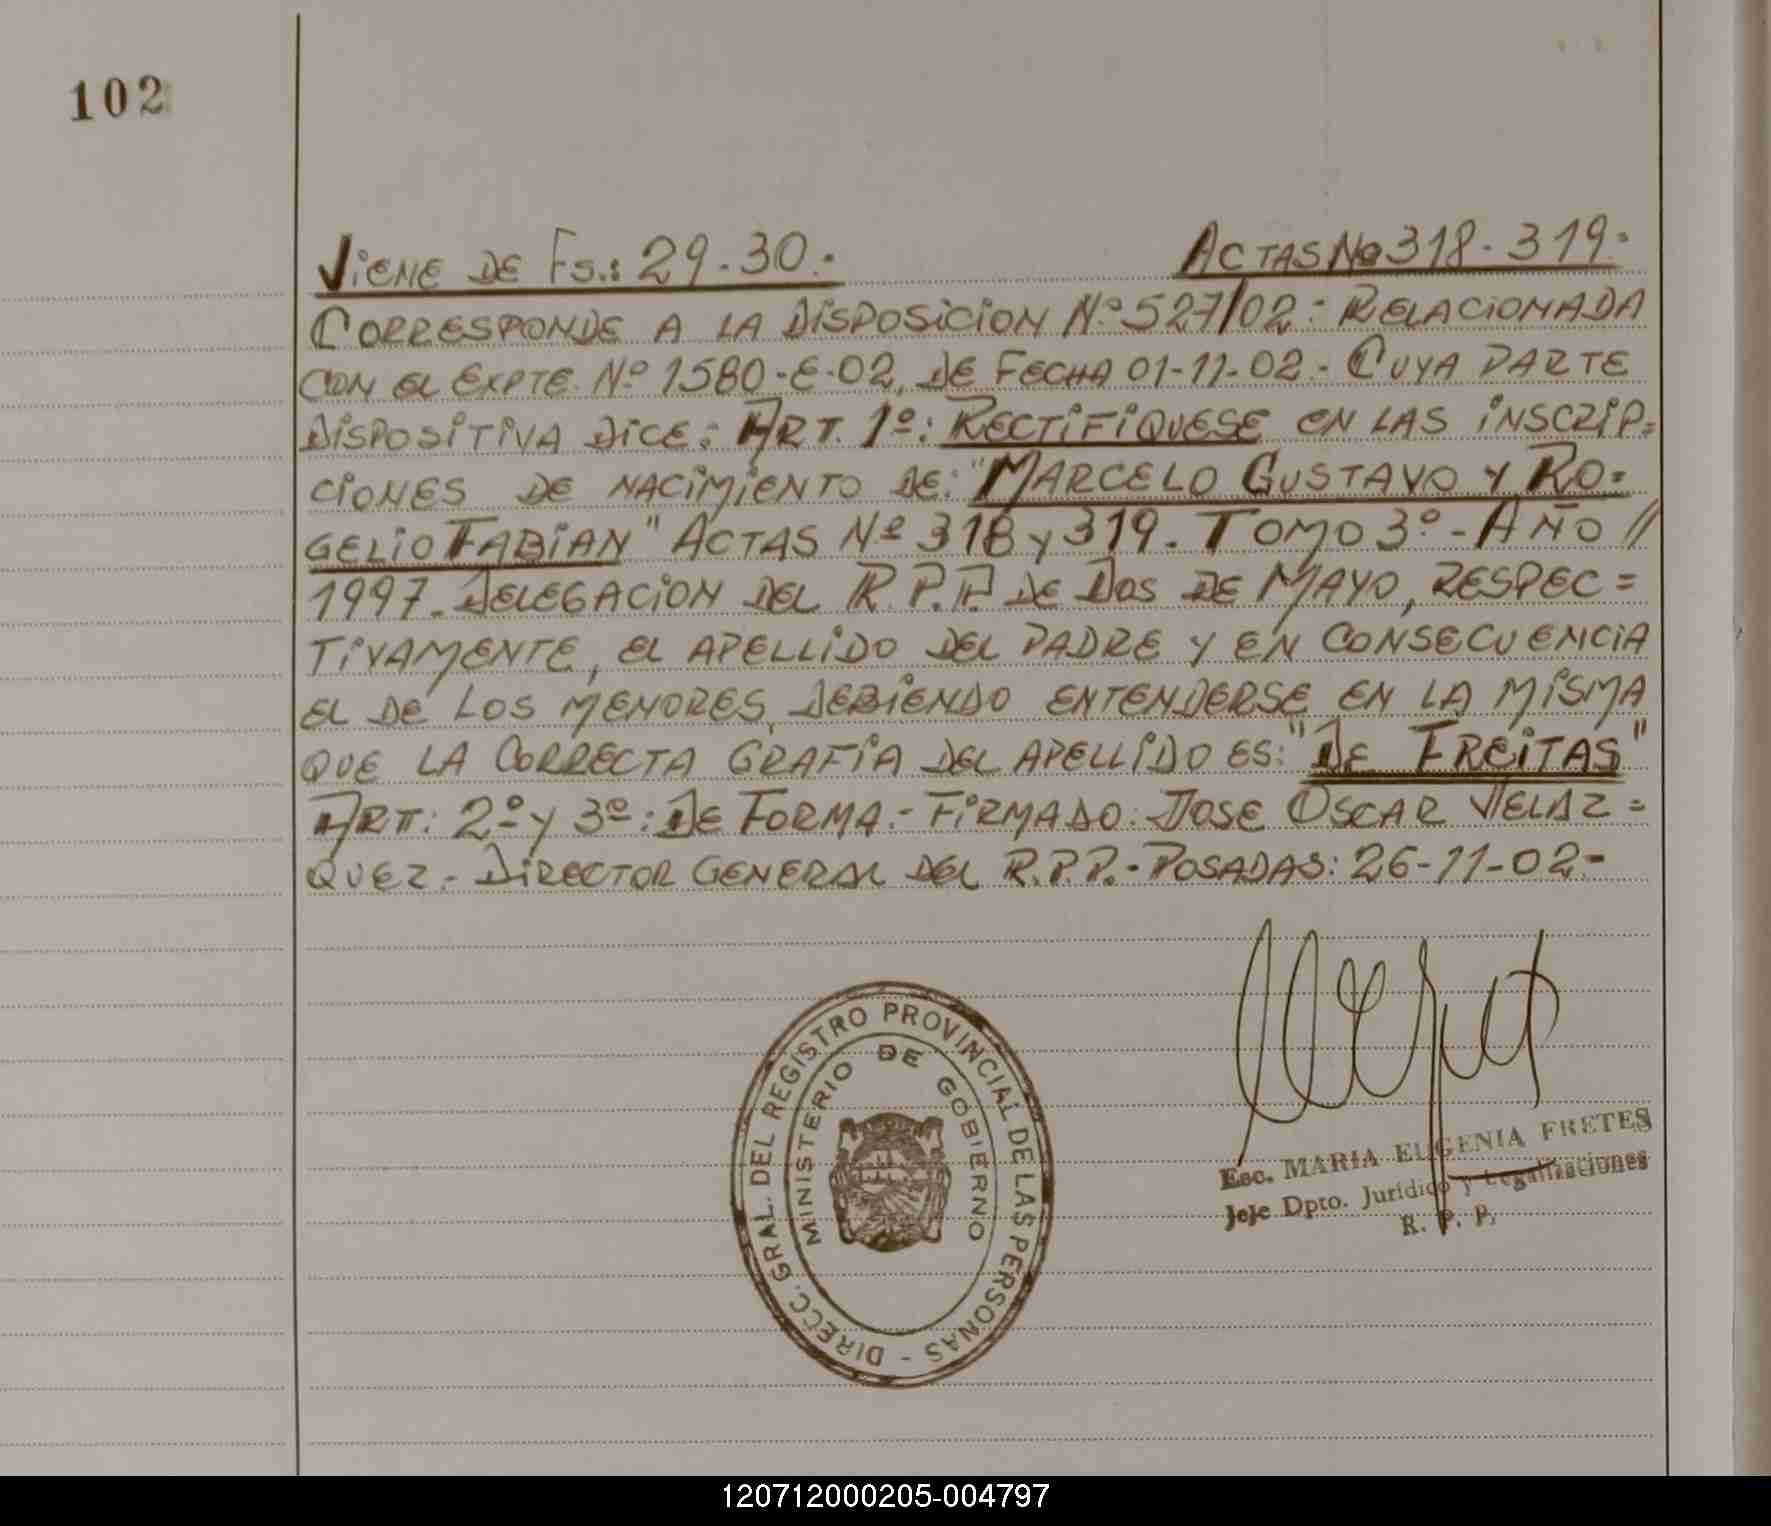 102
VIENE DE FS.: 29-30.- ACTAS Nº 318-319.-
CORRESPONDE A LA DISPOSICION Nº 527/02: RELACIONADA
CON EL EXPTE. Nº 1580-E-02, DE FECHA 01-11-02.- CUYA PARTE
DISPOSITIVA DICE: ART. 1º: RECTIFIQUESE EN LAS INSCRIP=
CIONES DE NACIMIENTO DE: "MARCELO GUSTAVO Y RO=
GELIO FABIAN" ACTAS Nº 318 y 319. TOMO 3º - AÑO //
1997. DELEGACION DEL R.P.P. DE DOS DE MAYO, RESPEC=
TIVAMENTE, EL APELLIDO DEL PADRE Y EN CONSECUENCIA
EL DE LOS MENORES, DEBIENDO ENTENDERSE EN LA MISMA
QUE LA CORRECTA GRAFIA DEL APELLIDO ES: "DE FREITAS"
ART: 2º y 3º: DE FORMA.- FIRMADO: JOSE OSCAR VELAZ=
QUEZ.- DIRECTOR GENERAL DEL R.P.P.- POSADAS: 26-11-02.-
DIRECC. GRAL. DEL REGISTRO PROVINCIAL DE LAS PERSONAS -
MINISTERIO DE GOBIERNO
Esc. MARIA EUGENIA FRETES
Jefe Dpto. Jurídico y Legalizaciones
R. P. P.
120712000205-004797